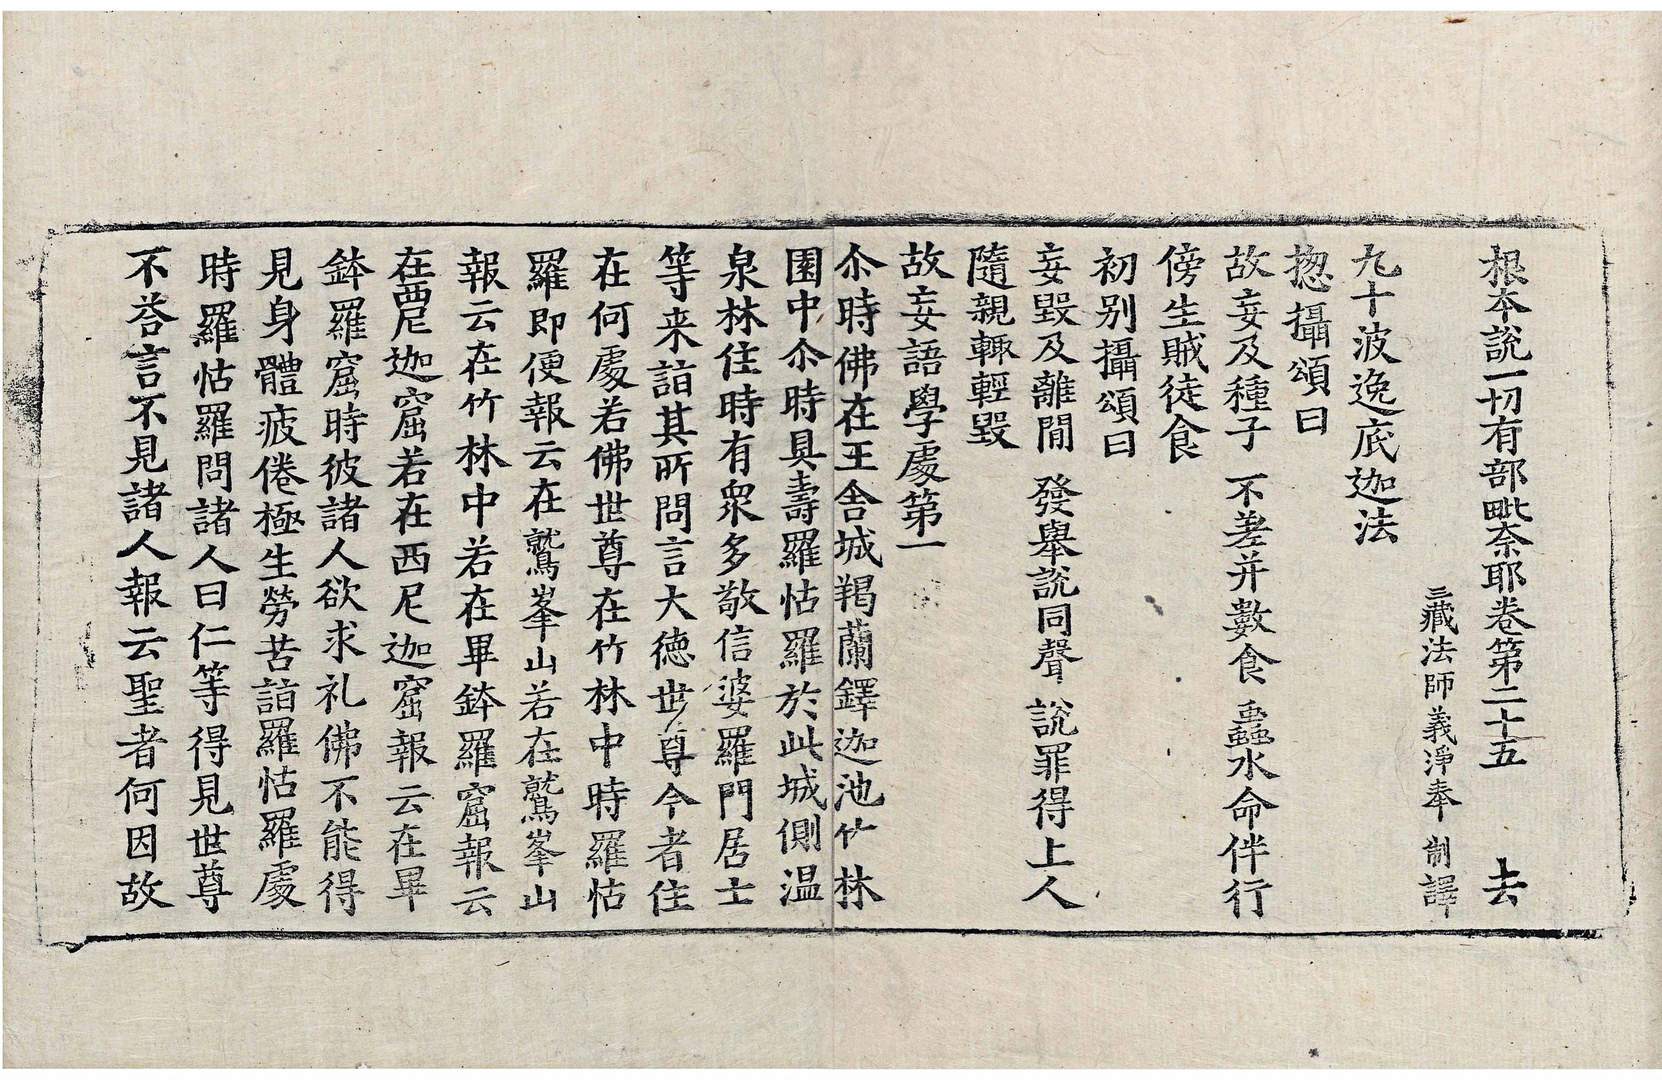 根本說一切有部毗奈耶卷第二十五 去
三藏法師義淨奉 制譯
九十波逸底迦法
揔攝頌曰
故妄及種子 不差并數食 蟲水命伴行
傍生賊徒食
初別攝頌曰
妄毀及離間 發舉說同聲 說罪得上人
隨親輙輕毀
故妄語學處第一
尒時佛在王舍城羯蘭鐸迦池竹林
園中尒時具壽羅怙羅於此城側温
泉林住時有衆多敬信婆羅門居士
等来詣其所問言大德世尊今者住
在何處若佛世尊在竹林中時羅怙
羅即便報云在鷲峯山若在鷲峯山
報云在竹林中若在畢鉢羅窟報云
在西尼迦窟若在西尼迦窟報云在畢
鉢羅窟時彼諸人欲求礼佛不能得
見身體疲倦極生勞苦詣羅怙羅處
時羅怙羅問諸人曰仁等得見世尊
不荅言不見諸人報云聖者何因故